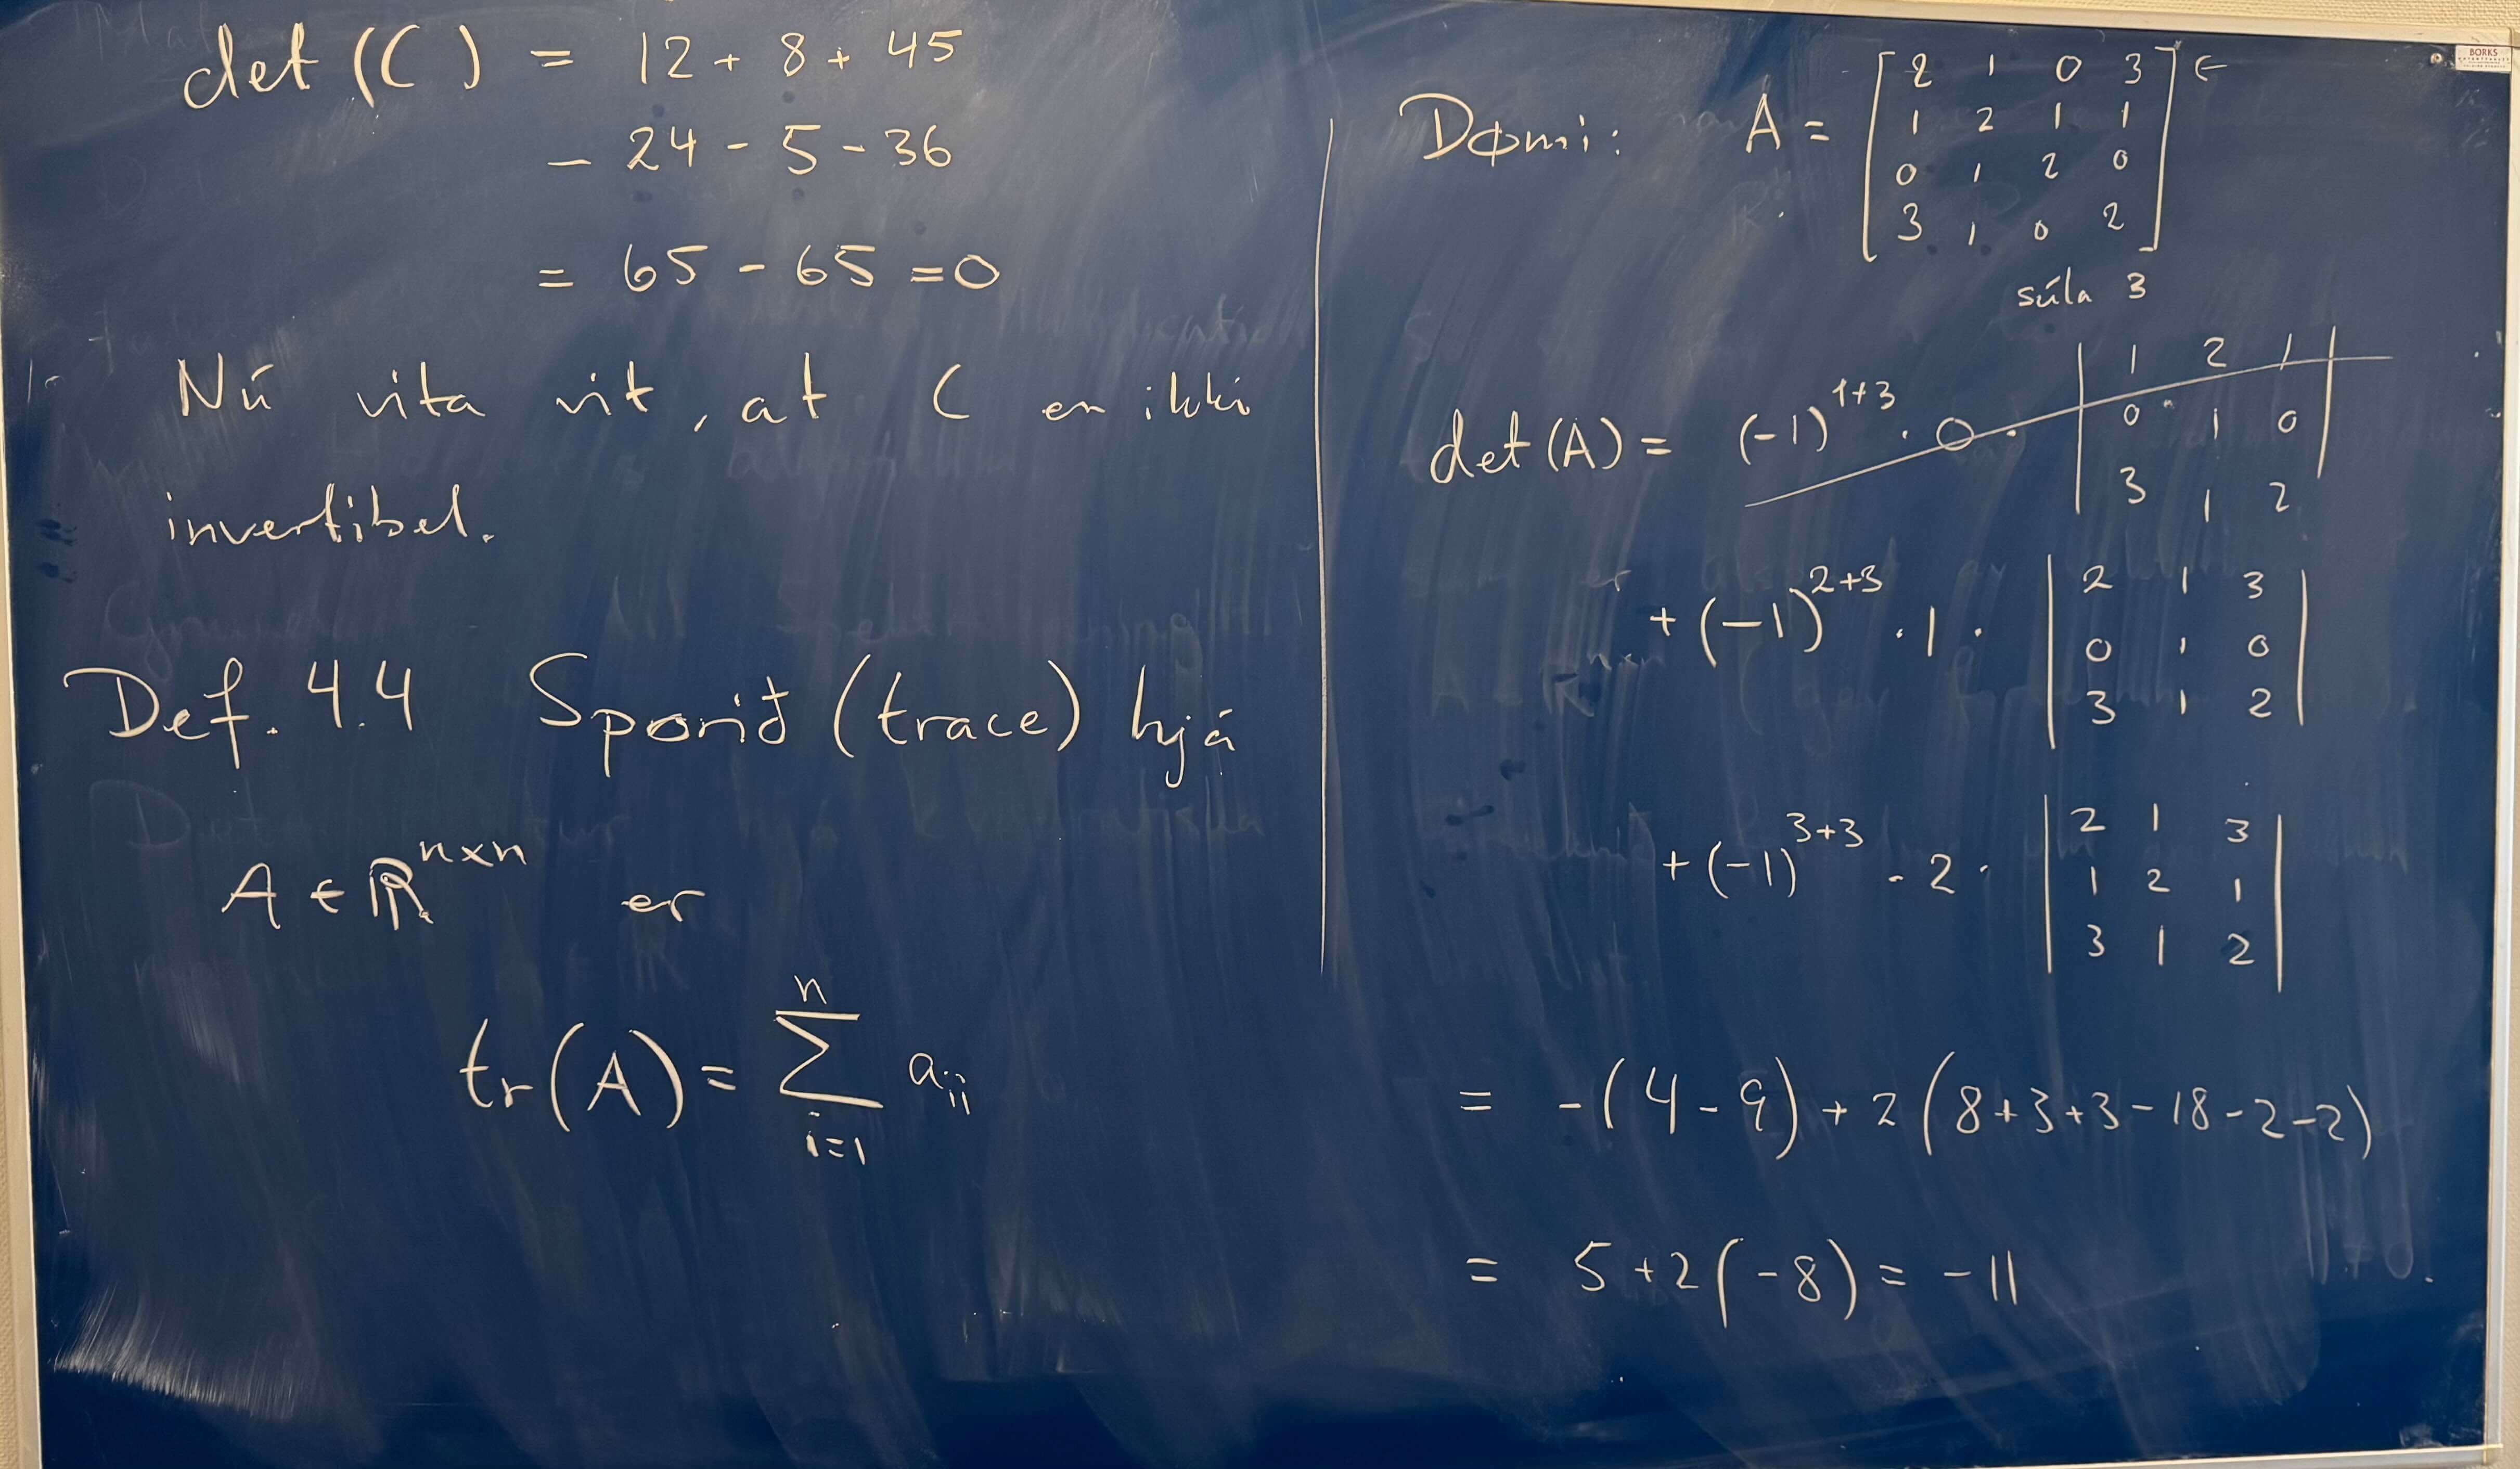 det(C) = 12 + 8 + 45
- 24 - 5 - 36
= 65 - 65 = 0
Nú vita vit, at C er ikki
invertibel.
Def. 4.4 Sporið (trace) hjá
A ∈ ℝ^{n×n} er
tr(A) = \sum_{i=1}^{n} a_{ii}
Dømi: A = [ 2 1 0 3 ] ←
[ 1 2 1 1 ]
[ 0 1 2 0 ]
[ 3 1 0 2 ]
súla 3
det(A) = (-1)^{1+3} · 0 · | 1 2 1 |
| 0 1 0 |
| 3 1 2 |
+ (-1)^{2+3} · 1 · | 2 1 3 |
| 0 1 0 |
| 3 1 2 |
+ (-1)^{3+3} · 2 · | 2 1 3 |
| 1 2 1 |
| 3 1 2 |
= -(4 - 9) + 2(8 + 3 + 3 - 18 - 2 - 2)
= 5 + 2(-8) = -11
BORKS